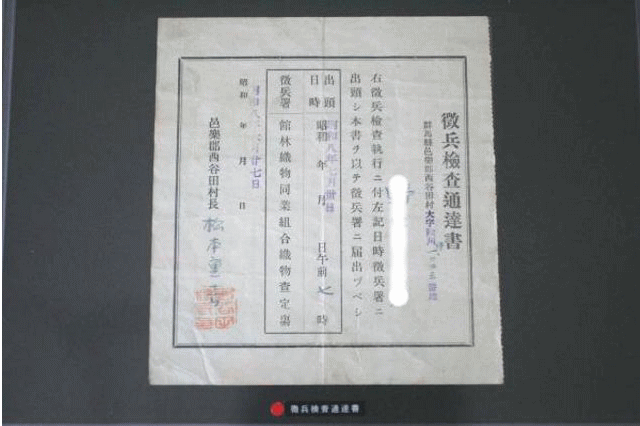 徴兵檢査通達書
群馬縣邑樂郡西谷田村大字
右徴兵檢査執行ニ付左記日時徴兵署ニ
出頭シ本書ヲ以テ徴兵署ニ届出ヅベシ
出頭日時 昭和八年七月 日午前七時
徴兵署 館林織物同業組合織物査定場
昭和 年 月 日
昭和八年 月廿七日
邑樂郡西谷田村長 松本
徴兵検査通達書